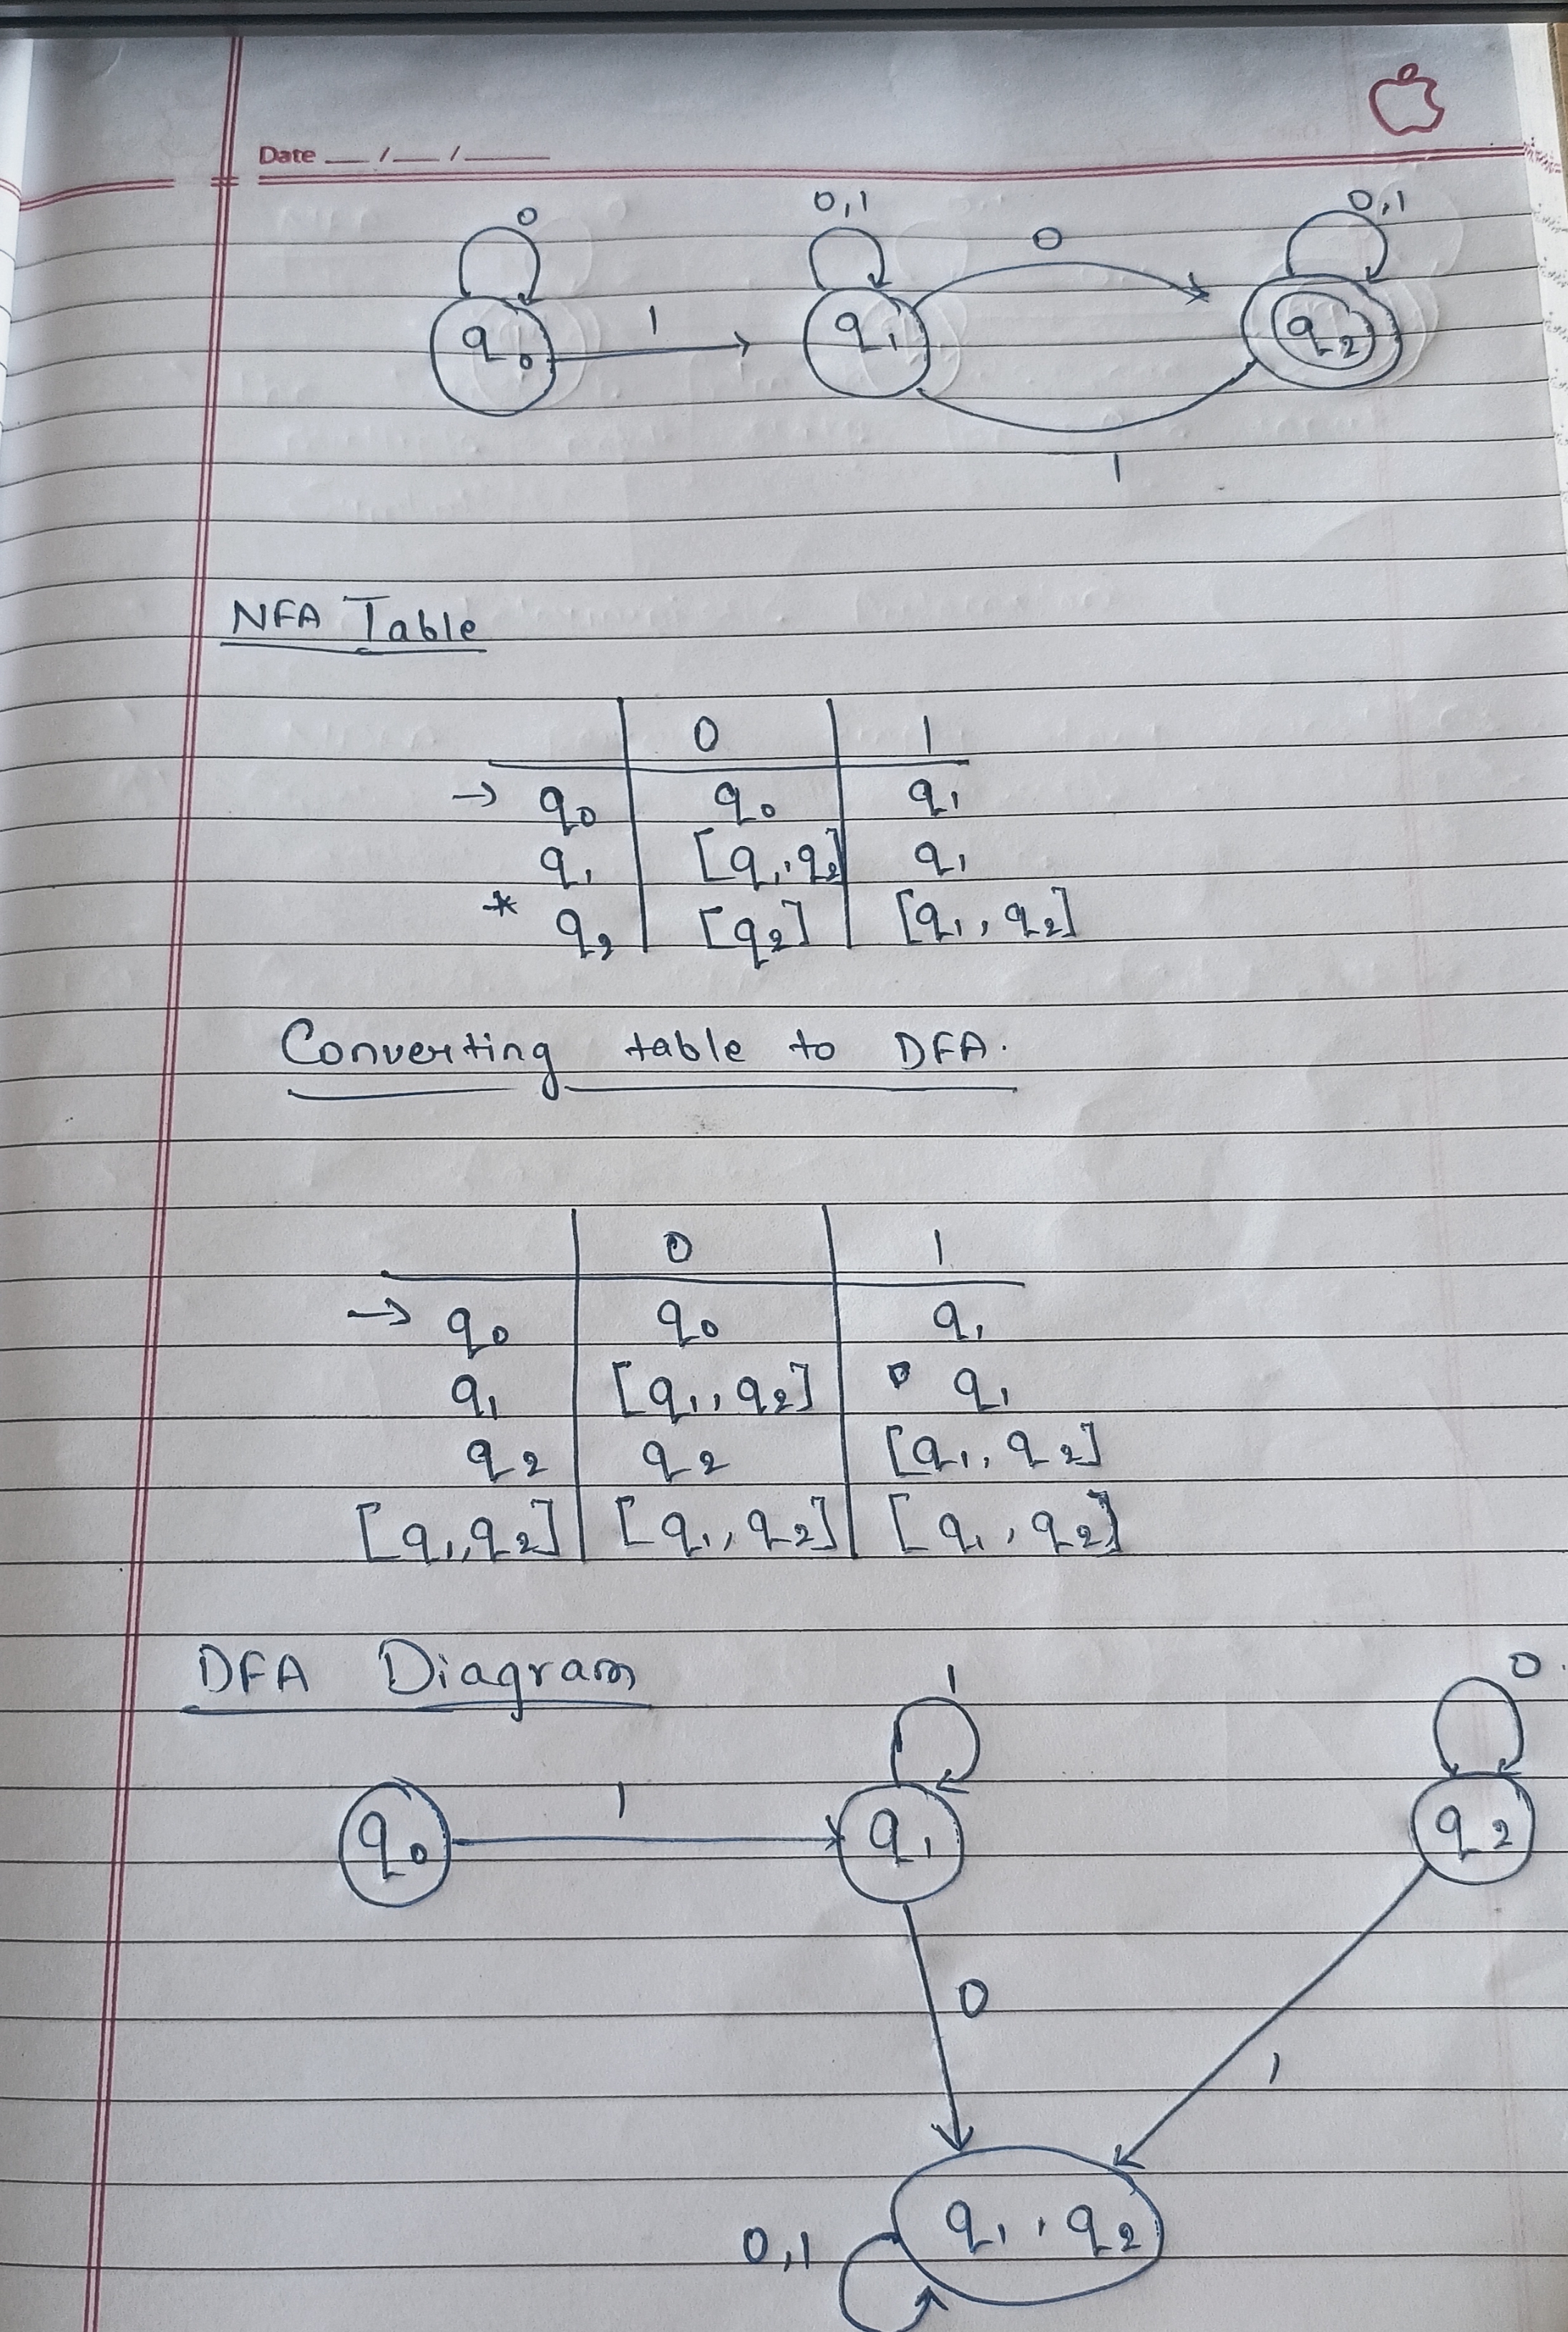 Date __ / __ / ____
0 0,1 0 0,1
q₀ 1 q₁ q₂
1
NFA Table
0 1
→ q₀ q₀ q₁
q₁ [q₁, q₂] q₁
* q₂ [q₂] [q₁, q₂]
Converting table to DFA.
0 1
→ q₀ q₀ q₁
q₁ [q₁, q₂] q₁
q₂ q₂ [q₁, q₂]
[q₁, q₂] [q₁, q₂] [q₁, q₂]
DFA Diagram 1 0.
1
q₀ q₁ q₂
0
1
q₁, q₂
0,1